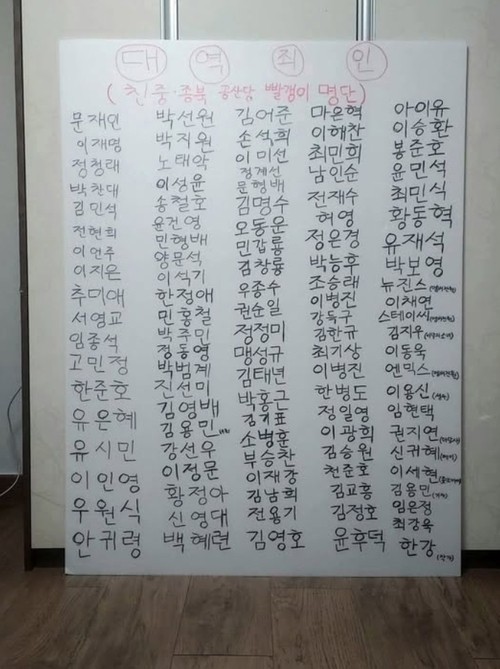 대 역 죄 인
( 친중·종북 공산당 빨갱이 명단)
문재인
이재명
정청래
박찬대
김민석
전현희
이언주
이지은
추미애
서영교
임종석
고민정
한준호
유은혜
유시민
이인영
우원식
안귀령
박선원
박지원
노태악
이성윤
송철호
윤건영
민형배
양문석
이석기
한정애
민홍철
박주민
정동영
박범계
진선미
김영배
김용민
강선우
이정문
황정아
신영대
백혜련
김어준
손석희
이미선
정계선
문형배
김명수
오동운
민갑룡
김창룡
우종수
권순일
정정미
맹성규
김태년
박홍근
김기표
소병훈
부승찬
이재강
김남희
전용기
김영호
마은혁
이해찬
최민희
남인순
전재수
허영
정은경
박능후
조승래
이병진
강득구
김한규
최기상
이병진
한병도
정일영
이광희
김승원
천준호
김교흥
김정호
윤후덕
아이유
이승환
봉준호
윤민석
최민식
황동혁
유재석
박보영
뉴진스
이채연
스테이씨
김지우
이동욱
엔믹스
이용신
임현택
권지연
신귀혜
이세현
김용민
임은정
최강욱
한강